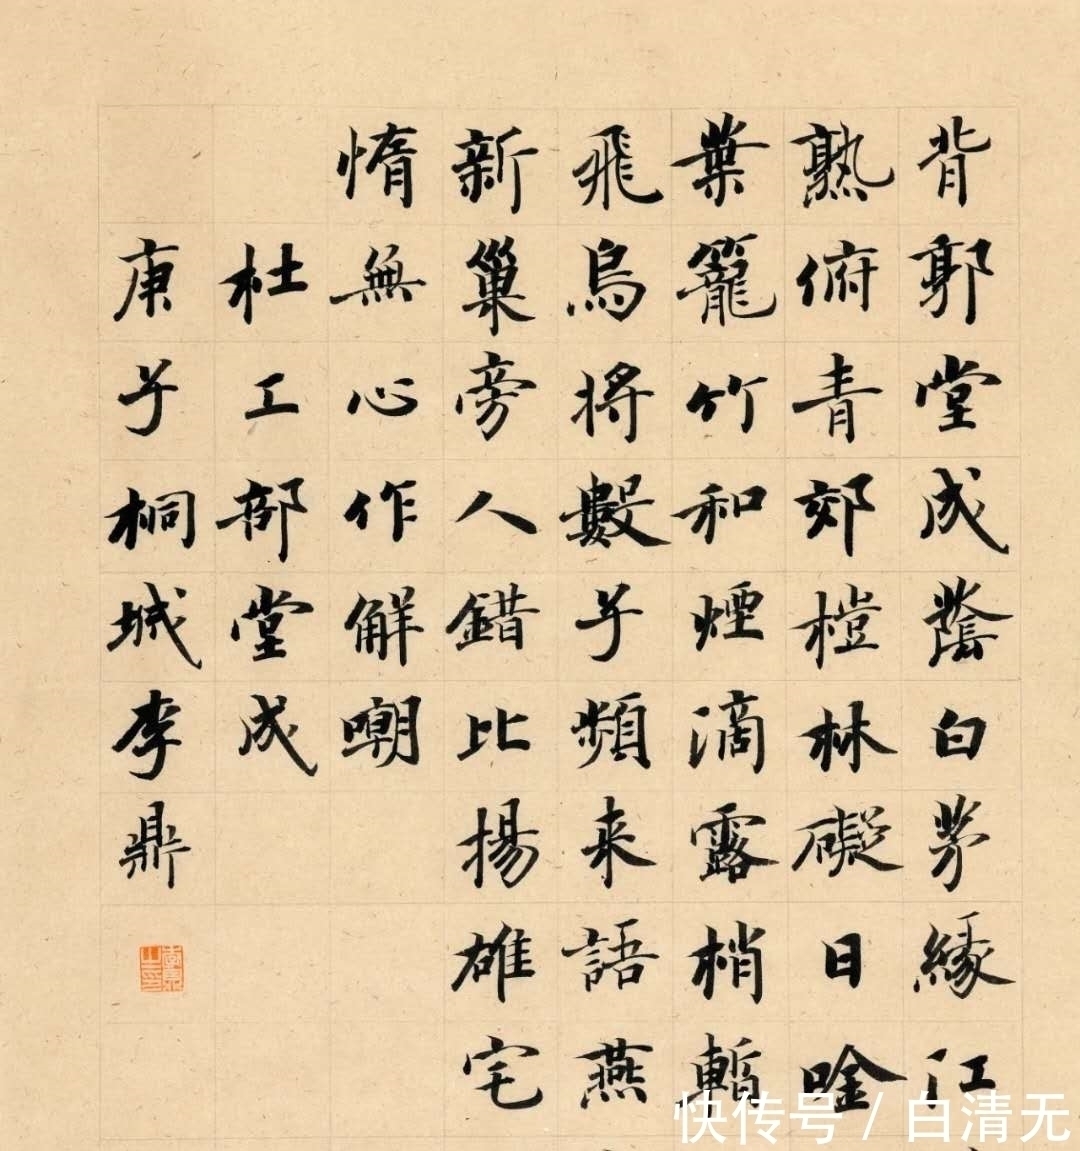 背郭堂成蔭白茅緣江
熟俯青郊榿林礙日唫
葉籠竹和煙滴露梢暫
飛烏將數子頻来語燕
新巢旁人錯比揚雄宅
惰無心作解嘲
杜工部堂成
庚子桐城李鼎
快传号 / 白清无